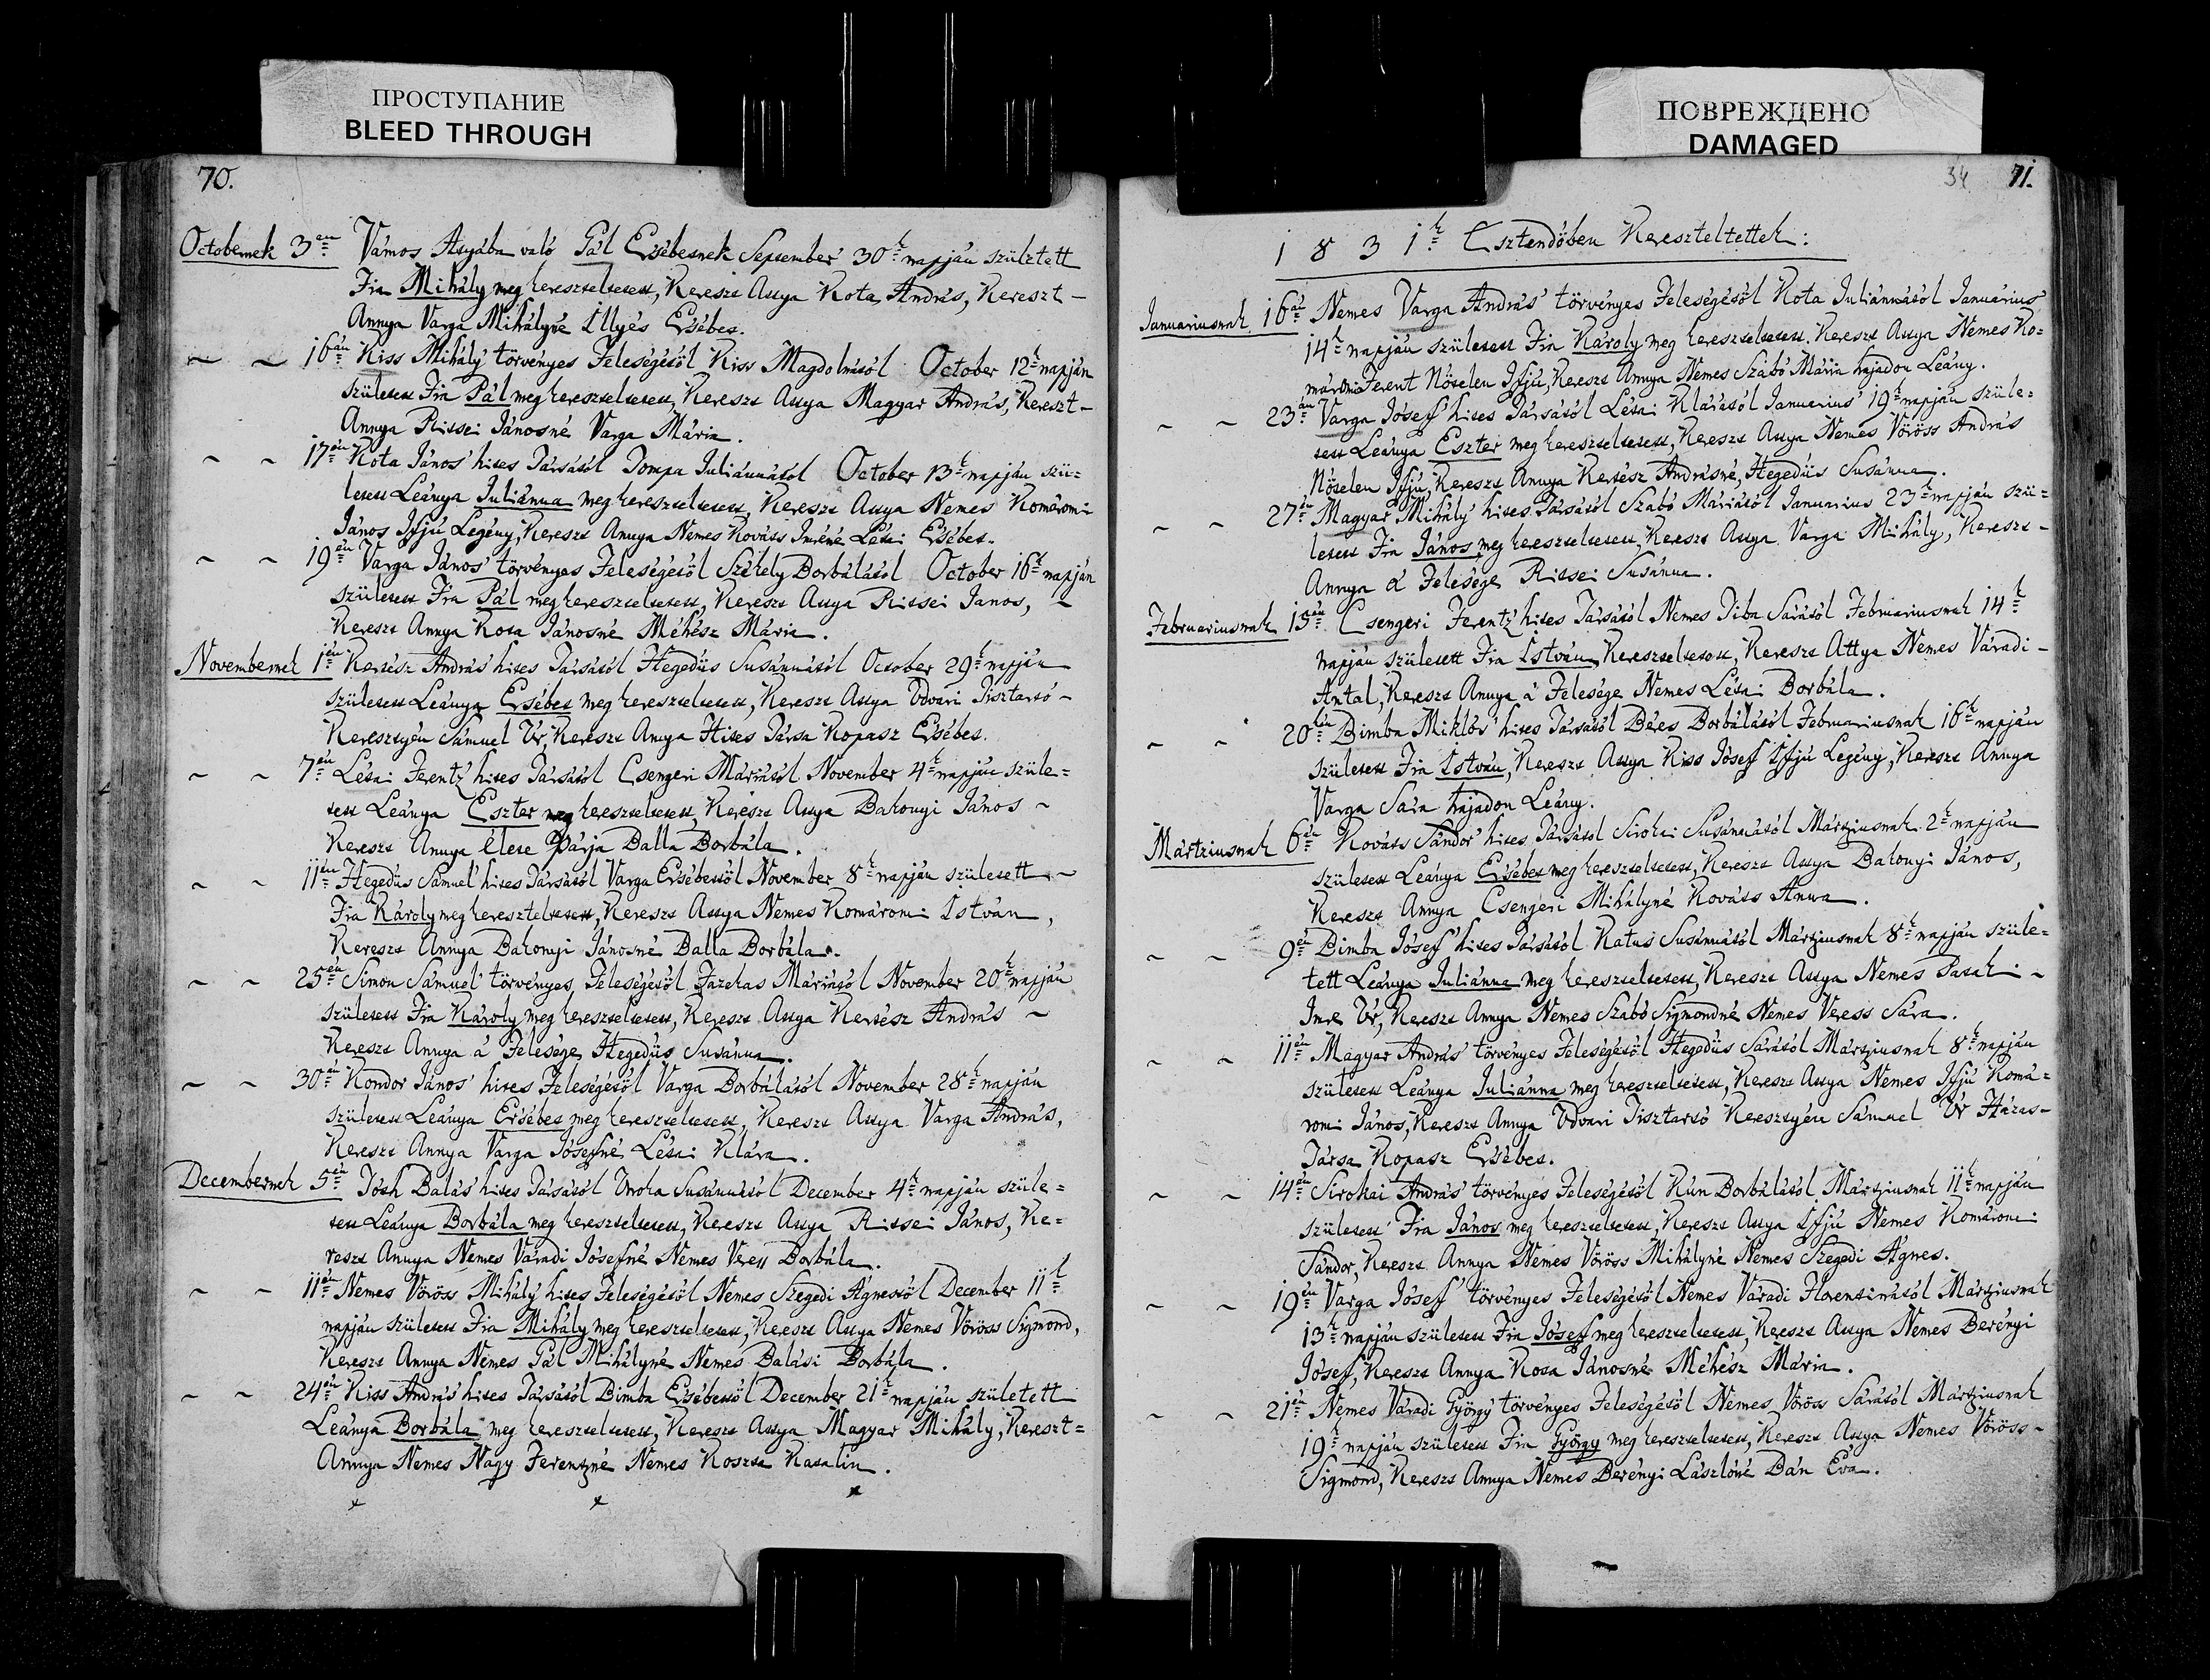 ПРОСТУПАНИЕ
BLEED THROUGH
70.
Octobernek 3án Vámos Atyába való Pál Ersébetnek September 30k napján szülztett
Fia Mihály meg kereszteltetett, Kereszt Attya Kota András, Kereszt-
Annya Varga Mihályné Illyés Ersébet.
~ ~ 16án Kiss Mihály törvényes Feleségétöl Kiss Magdolnától October 12k napján
született Fia Pál meg kereszteltetett, Kereszt Attya Magyar András, Kereszt-
Annya Ritsei Jánosné Varga Mária.
~ ~ 17én Kota János' hites Társától Tompa Juliánnától October 13k napján szü=
letett Leánya Juliánna meg kereszteltetett, Kereszt Attya Nemes Komáromi
János Ifjú Legény, Kereszt Annya Nemes Kováts Imréné Létai Ersébet.
~ ~ 19én Varga János' törvényes Feleségétöl Székely Borbálától October 16k napján
született Fia Pál meg kereszteltetett, Kereszt Attya Ritsei János, ~
Kereszt Annya Kota Jánosné Méhész Mária.
Novembernek 1jén Kertész András' hites Társától Hegedüs Susánnától October 29k napján
született Leánya Ersébet meg kereszteltetett, Kereszt Attya Udvari Tisztartó-
Keresztyén Sámuel Úr, Kereszt Annya Hites Társa Kopasz Ersébet.
~ ~ 7én Létai Ferentz' hites Társától Csengeri Máriától November 4k napján szüle=
tett Leánya Eszter meg kereszteltetett, Kereszt Attya Bakonyi János ~
Kereszt Annya élete Párja Balla Borbála.
~ ~ 11én Hegedüs Sámuel' hites Társától Varga Ersébettöl November 8k napján született ~
Fia Károly meg kereszteltetett, Kereszt Attya Nemes Komáromi István,
Kereszt Annya Bakonyi Jánosné Balla Borbála.
~ ~ 25én Simon Sámuel' törvényes Feleségétöl Fazekas Máriától November 20k napján
született Fia Károly meg kereszteltetett, Kereszt Attya Kertész András ~
Kereszt Annya á Felesége Hegedüs Susánna.
~ ~ 30án Kondor János' hites Feleségétöl Varga Borbálától November 28k napján
született Leánya Ersébet meg kereszteltetett, Kereszt Attya Varga András,
Kereszt Annya Varga Jósefné Létai Klára.
Decembernek 5én Tóth Balás' hites Társától Susánnától December 4k napján szüle=
tett Leánya Borbála meg kereszteltetett, Kereszt Attya Ritsei János, Ke=
reszt Annya Nemes Váradi Jósefné Nemes Veress Borbála.
~ ~ 11én Nemes Vöröss Mihály' hites Feleségétöl Nemes Szegedi Ágnestöl December 11k
napján született Fia Mihály meg kereszteltetett, Kereszt Attya Nemes Vöröss Sigmond,
Kereszt Annya Nemes Pál Mihályné Nemes Balási Borbála.
~ ~ 24én Kiss András' hites Társától Bimba Ersébettöl December 21k napján született
Leánya Borbála meg kereszteltetett, Kereszt Attya Magyar Mihály, Kereszt=
Annya Nemes Nagy Ferentzné Nemes Koszta Katalin.
ПОВРЕЖДЕНО
DAMAGED
34 71.
1831k Esztendőben Kereszteltettek:
Januariusnak 16án Nemes Varga András' törvényes Feleségétöl Kota Juliánnától Januárius'
14k napján született Fia Károly meg kereszteltetett, Kereszt Attya Nemes Ko=
máromi Ferent Nőtelen Ifjú, Kereszt Annya Nemes Szabó Mária hajadon Leány.
~ ~ 23án Varga Jósef' hites Társától Létai Klárától Januarius' 19k napján szüle=
tett Leánya Eszter meg kereszteltetett, Kereszt Attya Nemes Vöröss András
Nőtelen Ifjú, Kereszt Annya Kertész Andrásné, Hegedüs Susánna.
~ ~ 27én Magyar Mihály' hites Társától Szabó Máriától Januarius 23k napján szü=
letett Fia János meg kereszteltetett, Kereszt Attya Varga Mihály, Kereszt-
Annya á Felesége Ritsei Susánna.
Februariusnak 15én Csengeri Ferentz' hites Társától Nemes Tiba Sárától Februariusnak 14k
napján született Fia István, Kereszteltetett, Kereszt Attya Nemes Váradi-
Antal, Kereszt Annya á Felesége Nemes Létai Borbála.
~ ~ 20án Bimba Miklós' hites Társától Béres Borbálától Februariusnak 16k napján
született Fia István, Kereszt Attya Kiss Jósef Ifjú Legény, Kereszt Annya
Varga Sára hajadon Leány.
Mártziusnak 6án Kováts Sándor' hites Társától Sirokai Susánnától Mártziusnak 2k napján
született Leánya Ersébet meg kereszteltetett, Kereszt Attya Bakonyi János,
Kereszt Annya Csengeri Mihályné Kováts Anna.
~ ~ 9én Bimba Jósef' hites Társától Katus Susánnától Mártziusnak 8k napján szüle=
tett Leánya Juliánna meg kereszteltetett, Kereszt Attya Nemes Pataki ~
Imre Úr, Kereszt Annya Nemes Szabó Sigmondné Nemes Veress Sára.
~ ~ 11én Magyar András' törvényes Feleségétöl Hegedüs Sárától Mártziusnak 8k napján
született Leánya Juliánna meg kereszteltetett, Kereszt Attya Nemes Ifjú Komá=
romi János, Kereszt Annya Udvari Tisztartó Keresztyén Sámuel Úr Házas-
Társa Kopasz Ersébet.
~ ~ 14én Sirokai András' törvényes Feleségétöl Kún Borbálától Mártziusnak 11k napján
született Fia János meg kereszteltetett, Kereszt Attya Ifjú Nemes Komáromi
Sándor, Kereszt Annya Nemes Vöröss Mihályné Nemes Szegedi Ágnes.
~ ~ 19én Varga Jósef' törvényes Feleségétöl Nemes Váradi Florentinától Mártziusnak
13k napján született Fia Jósef meg kereszteltetett, Kereszt Attya Nemes Berényi
Jósef, Kereszt Annya Kota Jánosné Méhész Mária.
~ ~ 21én Nemes Váradi György' törvényes Feleségétöl Nemes Vöröss Sárától Mártziusnak
19k napján született Fia György meg kereszteltetett, Kereszt Attya Nemes Vöröss-
Sigmond, Kereszt Annya Nemes Berényi Lászlóné Dán Éva.